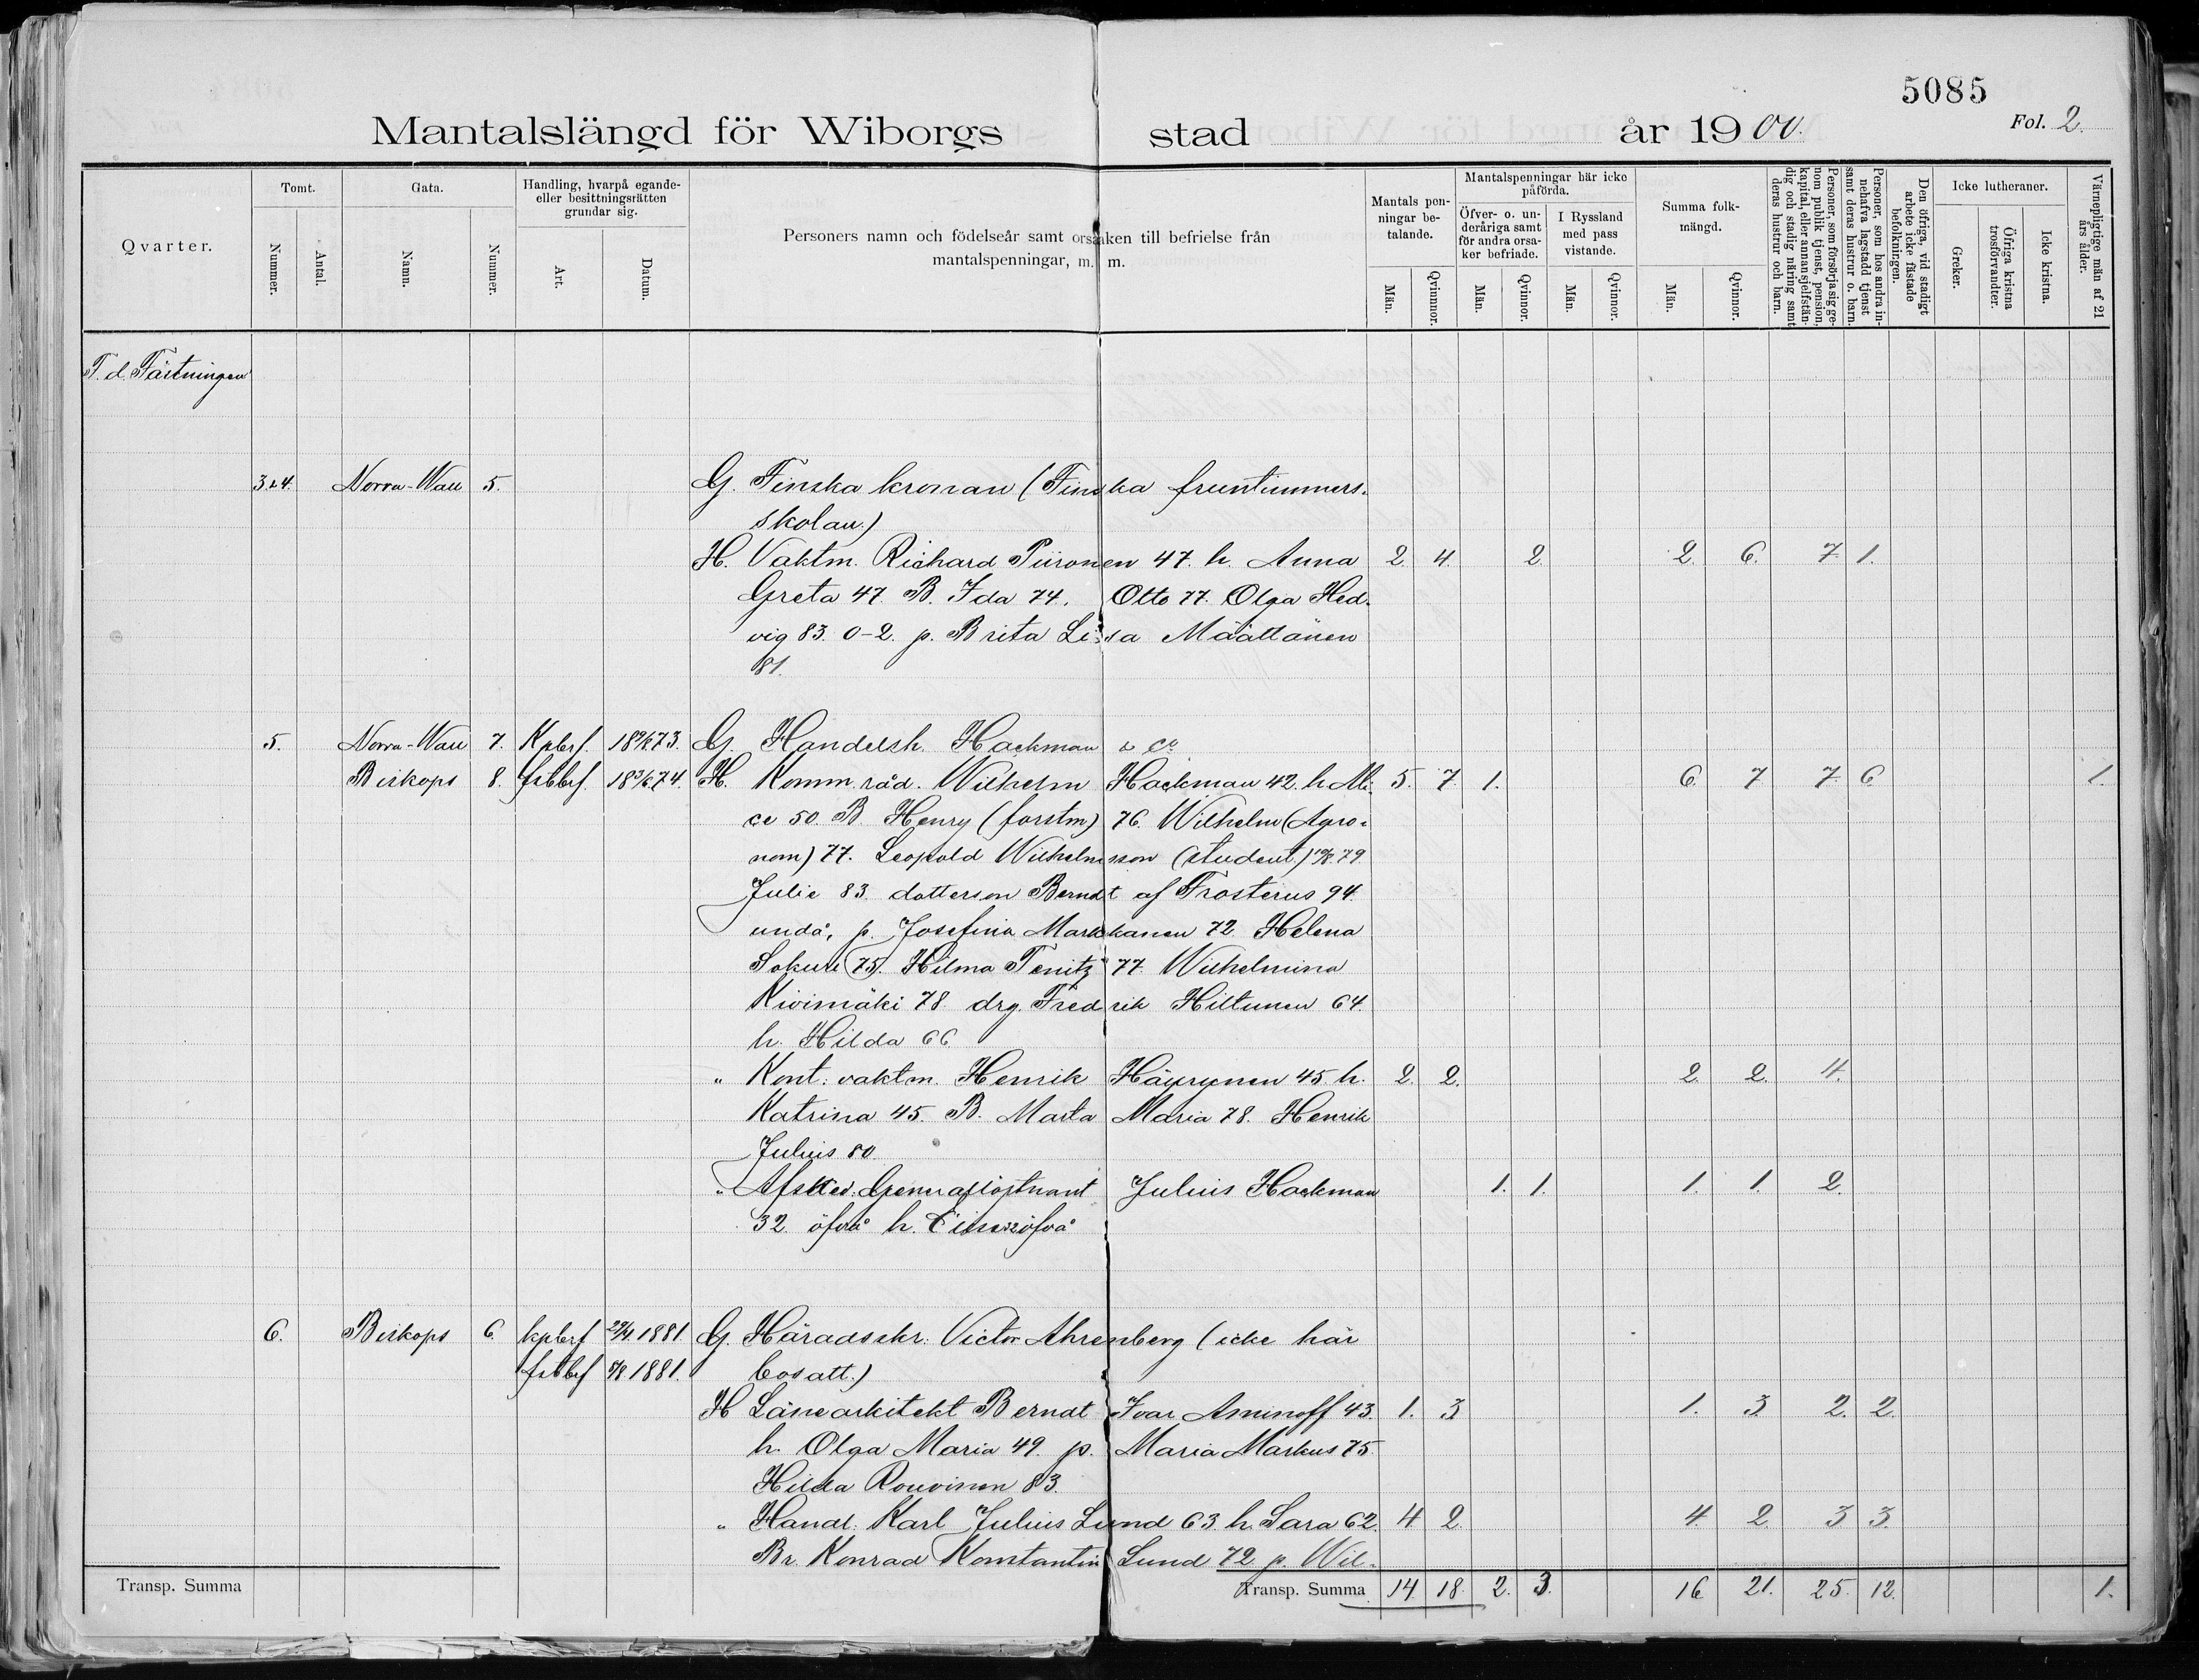 5085
Mantalslängd för Wiborgs stad år 1900. Fol. 2.
Qvarter.
Tomt.
Nummer.
Antal.
Gata.
Namn.
Nummer.
Handling, hvarpå egande- eller besittningsrätten grundar sig.
Art.
Datum.
Personers namn och födelseår samt orsaken till befrielse från mantalspenningar, m. m.
Mantals penningar betalande.
Män.
Qvinnor.
Mantalspenningar här icke påförda.
Öfver- o. underåriga samt för andra orsaker befriade.
Män.
Qvinnor.
I Ryssland med pass vistande.
Män.
Qvinnor.
Summa folkmängd.
Män.
Qvinnor.
Personer, som försörja sig genom publik tjenst, pension, kapital, eller annan sjelfständig och stadig näring samt deras hustrur och barn.
Personer, som hos andra innehafva lagstadd tjenst samt deras hustrur o. barn.
Den öfriga, vid stadigt arbete icke fästade befolkningen.
Icke lutheraner.
Greker.
Öfriga kristna trosförvandter.
Icke kristna.
Värnepligtige män af 21 års ålder.
T. d. Fästningen
3 & 4. Norra-Wall 5. G. Finska kronan (Finska fruntimmers-
skolan.)
H. Vaktm. Richard Piironen 47. h. Anna 2. 4. 2. 2. 6. 7. 1.
Greta 47. B. Ida 74. Otto 77. Olga Hed-
vig 83. 0-2. p. Brita Lisa Määttänen
81.
5. Norra-Wall 7. Kpbrf. 73. G. Handelsh. Hackman & Co
Biskops 8. fstbrf. 74. H. Komm.råd. Wilhelm Hackman 42. h. Ali- 5. 7. 1. 6. 7 7. 6. 1.
ce 50. B. Henry (forstm) 76. Wilhelm (Agro-
nom) 77. Leopold Wilhelmsson (student.) 79.
Julie 83. dotterson Berndt af Frosterus 94.
undå, p. Josefina Markkanen 72. Helena
75. Hilma Tenitz 77. Wilhelmina
Kivimäki 78. drg. Fredrik Hiltunen 64.
h. Hilda 66.
" Kont: vaktm. Henrik Häyrynen 45. h. 2. 2. 2. 2. 4.
Katrina 45. B. Marta Maria 78. Henrik
Julius 80.
" Afsked. Generallöjtnant Julius Hackman 1. 1. 1. 1. 2.
32. öfvå h. öfvå
6. Biskops 6. kpbrf 1881 G. Häradsskr. Victor Ahrenberg (icke här
fstbrf 1881. bosatt.)
H Länearkitekt Berndt Ivar Aminoff 43. 1. 3 1. 3. 2. 2.
h. Olga Maria 49. p. Maria Markus 75.
Hilda Rouvinen 83.
" Handl. Karl Julius Lund 63. h. Sara 62. 4. 2. 4. 2. 3 3.
Br. Konrad Konstantin Lund 72. p. Wil-
Transp. Summa Transp. Summa 14. 18. 2. 3. 16 21. 25. 12. 1.